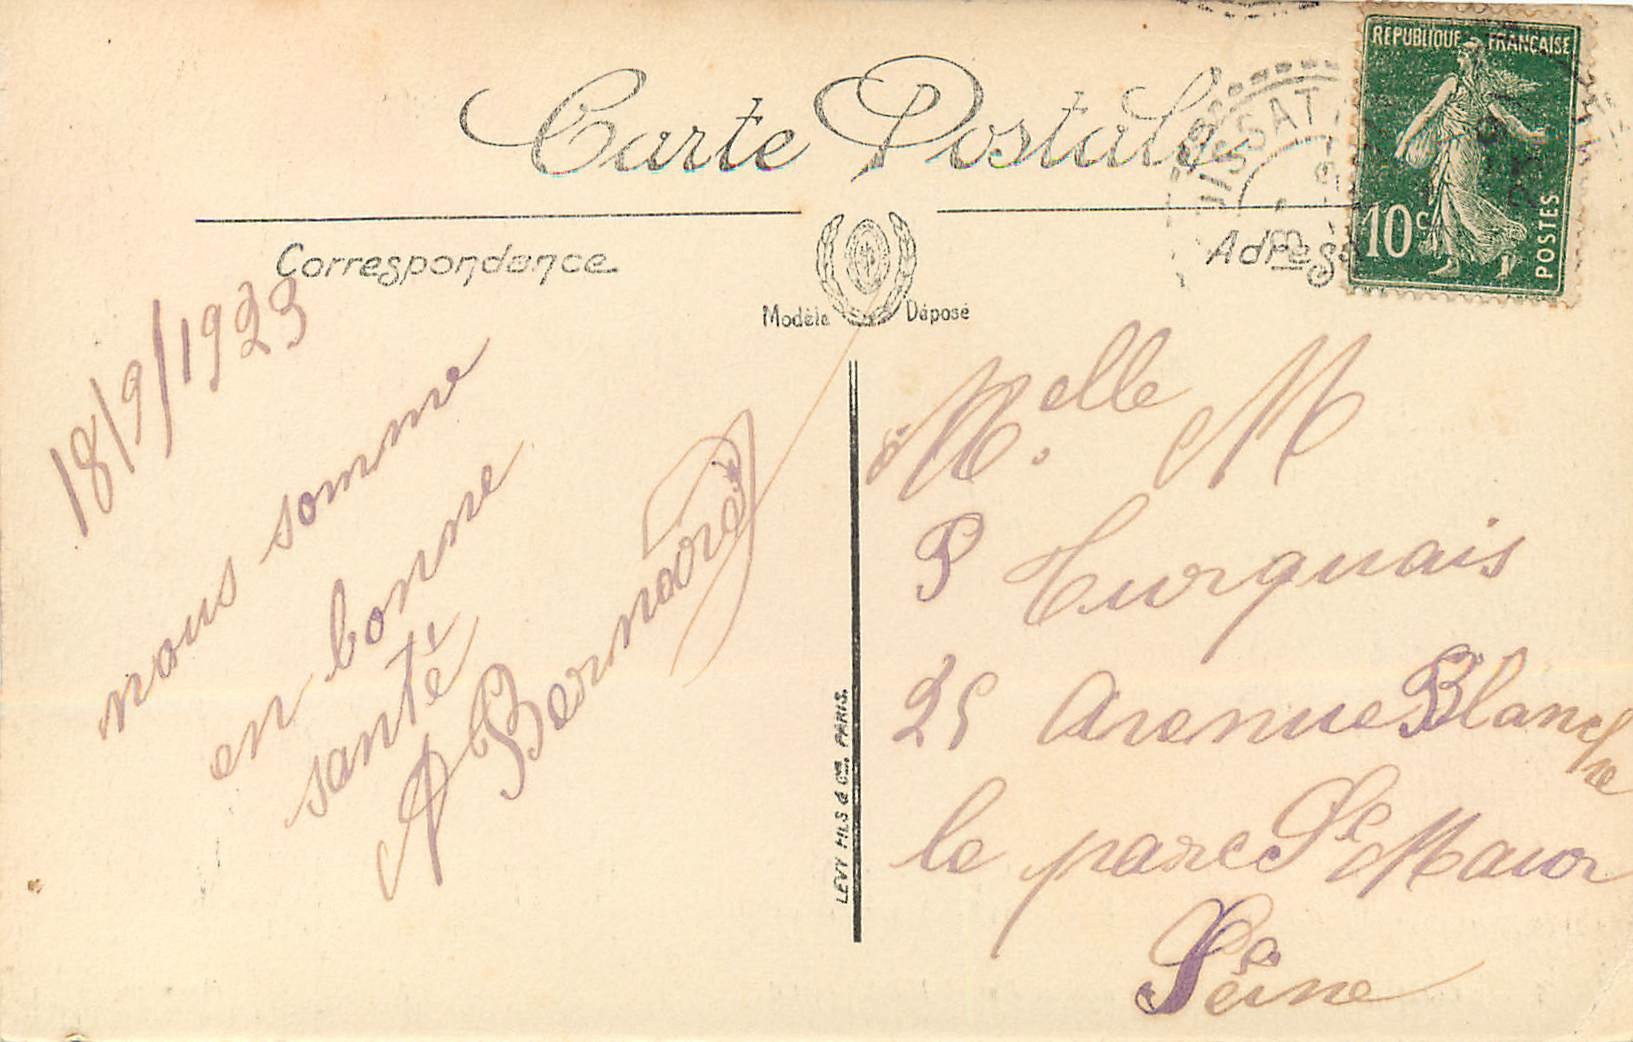 Carte Postale
Correspondance
Adresse
Modèle Déposé
RÉPUBLIQUE FRANÇAISE
10c
POSTES
18/9/1923
nous somme
en bonne
santé
A Bernard
LEVY FILS & Cie, PARIS.
Melle M
P Turquais
25 Avenue Blanche
le parc St Maur
Seine